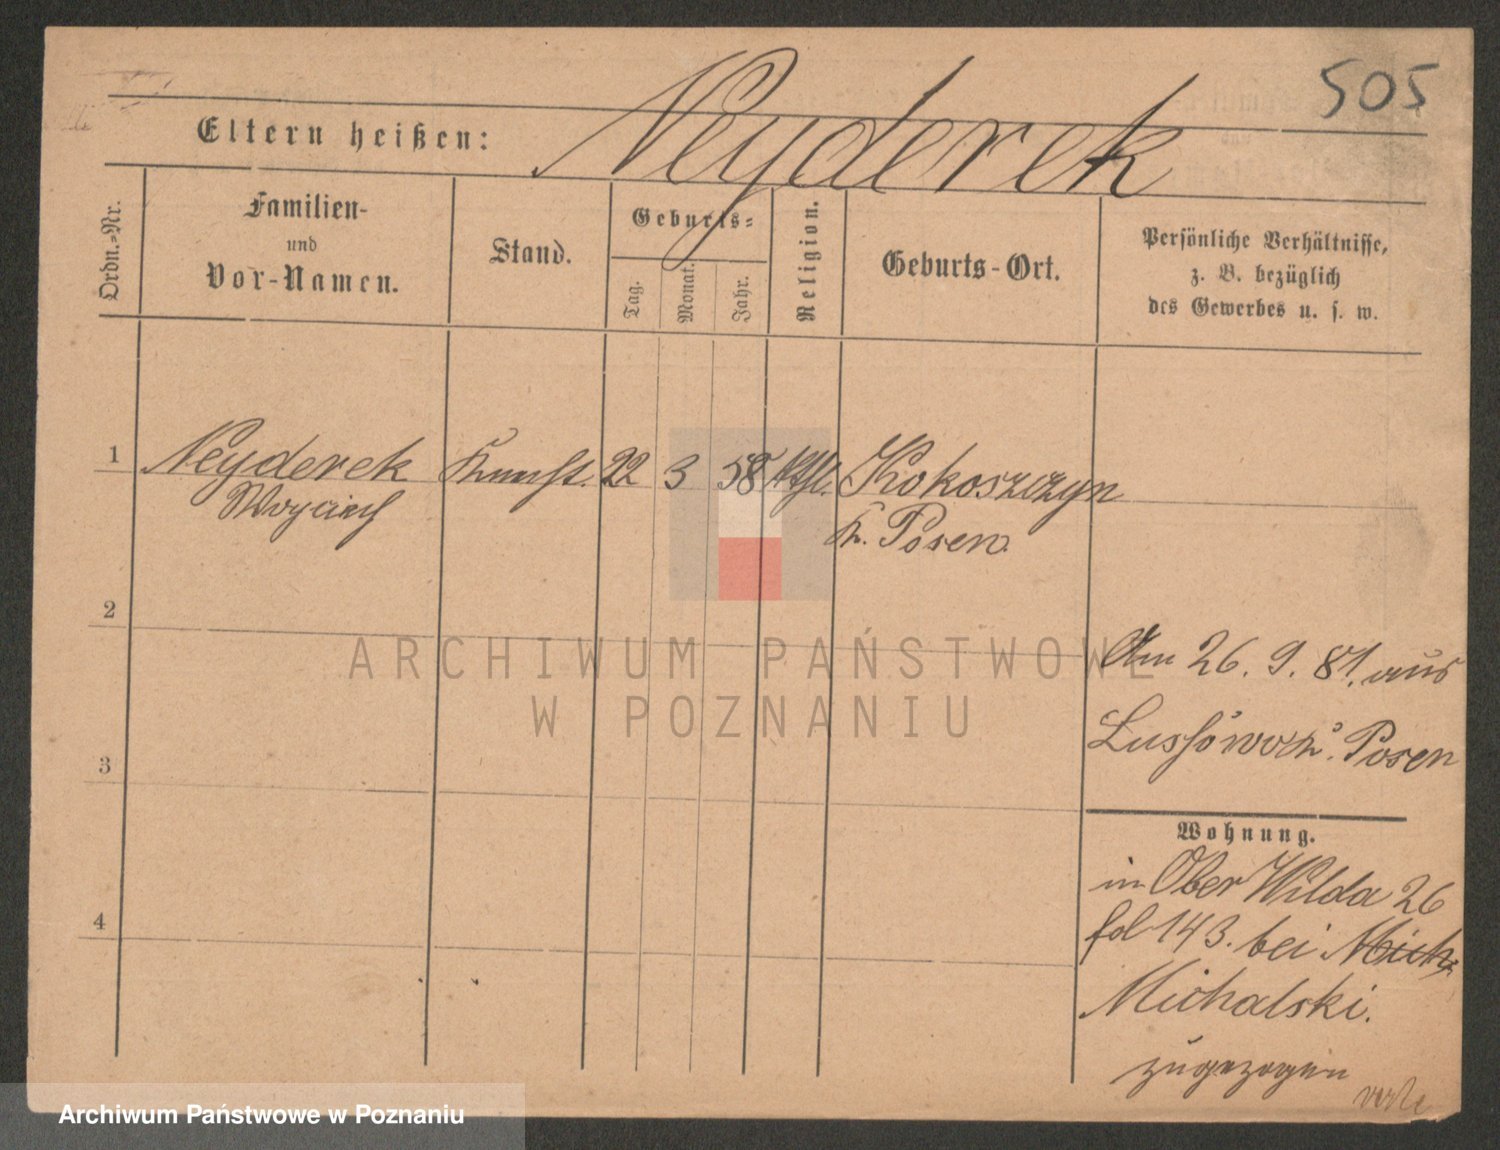 505
Eltern heißen: Neyderek
Ordn.-Nr.
Familien-
und
Vor-Namen.
Stand.
Geburts-
Tag.
Monat.
Jahr.
Religion.
Geburts-Ort.
Persönliche Verhältnisse,
z. B. bezüglich
des Gewerbes u. s. w.
1 Neyderek Knecht. 22 3 58 kthl. Kokoszczyn
Woyciech K. Posen.
2
3
4
Am 26. 9. 81. aus
Lussowo K. Posen
Wohnung.
in Ober Wilda 26
fol 143. bei Mich.
Michalski.
zugezogen
verte
ARCHIWUM PAŃSTWOWE
W POZNANIU
Archiwum Państwowe w Poznaniu